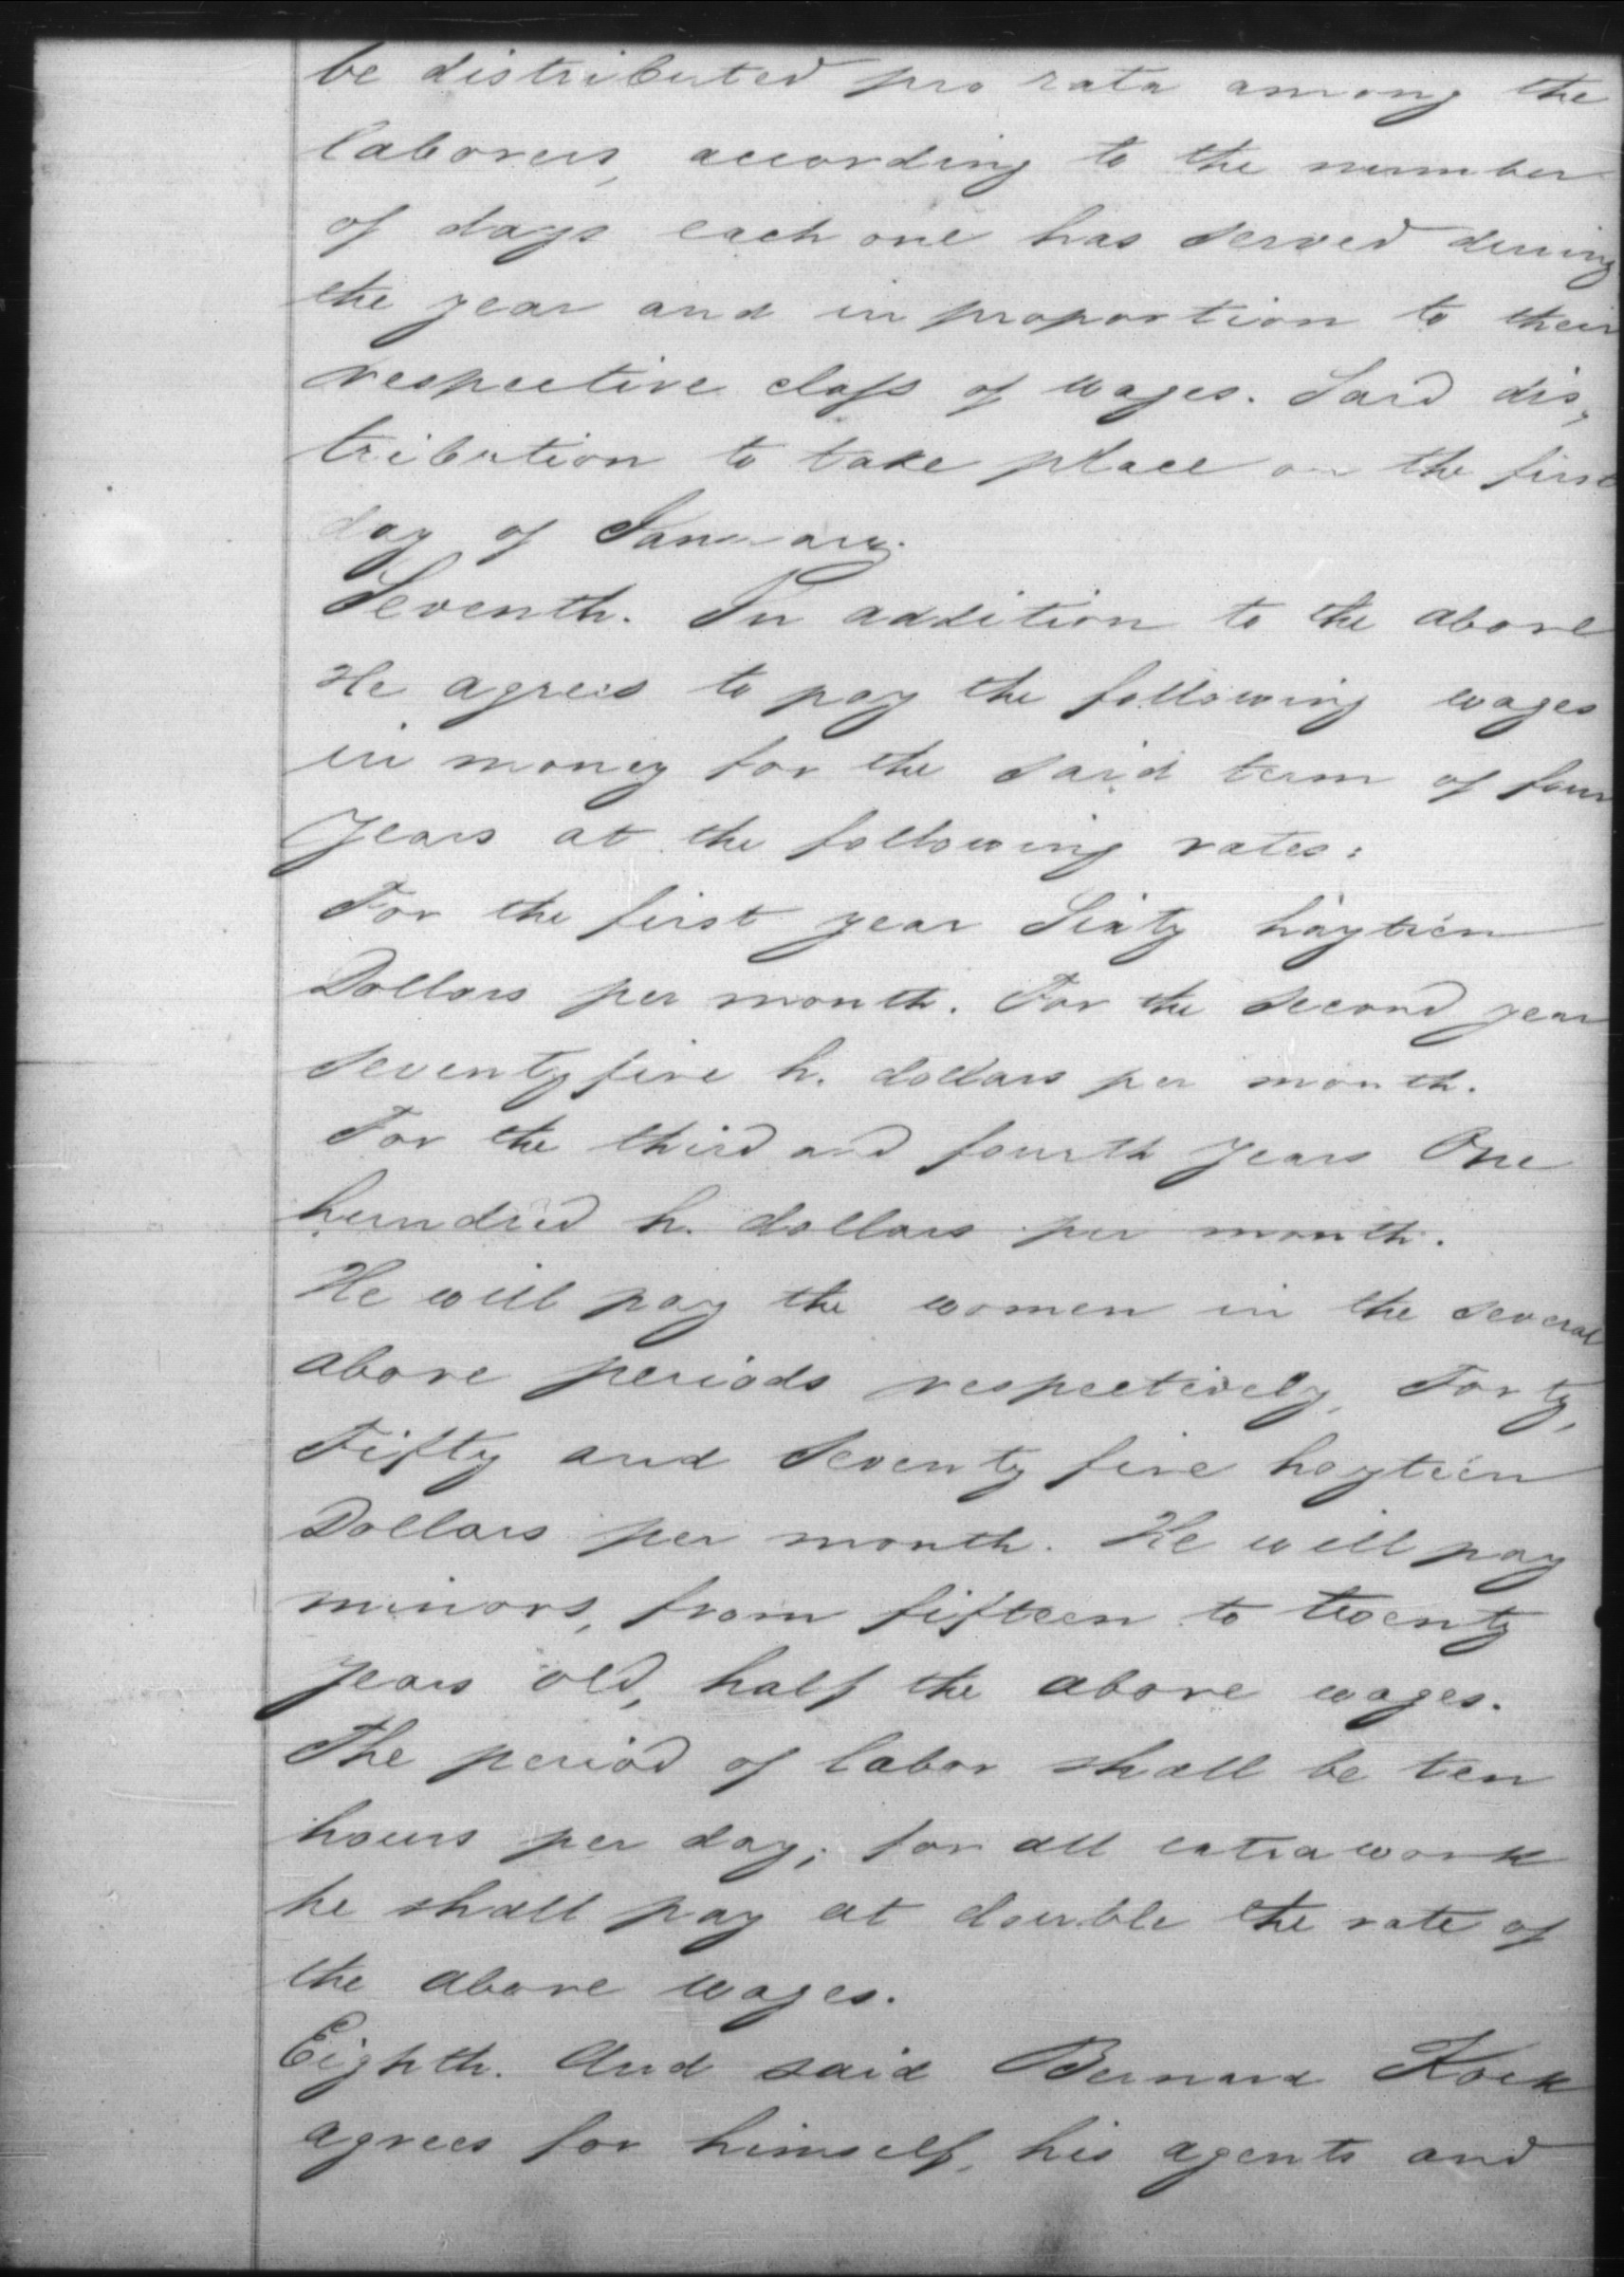 be distributed pro rata among the
laborers, according to the number
of days each one has served during
the year and in proportion to their
respective class of wages. Said dis,
tribution to take place on the first
day of January.
Seventh. In addition to the above
He agrees to pay the following wages
in money for the said term of four
Years at the following rates:
For the first year Sixty haytien
Dollars per month. For the second year
seventy five h. dollars per month.
For the third and fourth years One
hundred h. dollars per month.
He will pay the women in the several
above periods respectively, Forty,
Fifty and Seventy five haytien
Dollars per month. He will pay
minors, from fifteen to twenty
years old, half the above wages.
The period of labor shall be ten
hours per day; for all extra work
he shall pay at double the rate of
the above wages.
Eighth. And said Bernard Kock
agrees for himself, his agents and